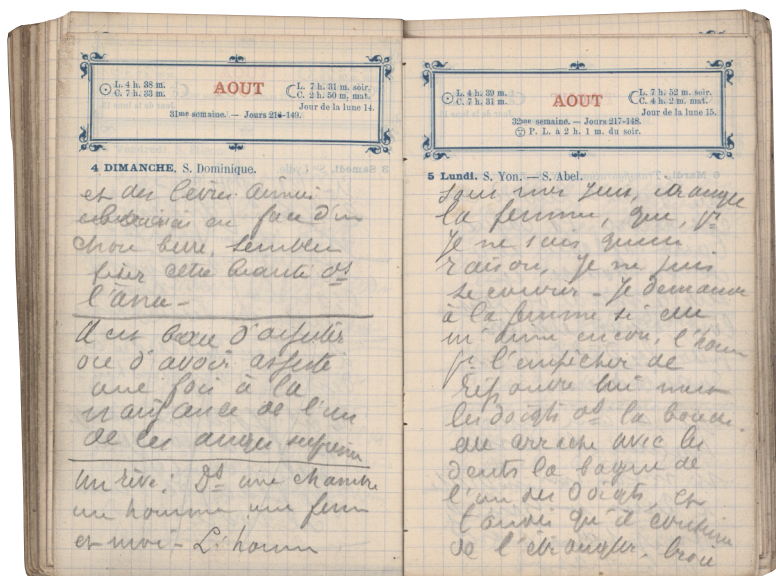 L. 4 h. 38 m.
C. 7 h. 33 m.
AOUT
L. 7 h. 31 m. soir.
C. 2 h. 50 m. mat.
Jour de la lune 14.
31me semaine. — Jours 216-149.
4 DIMANCHE. S. Dominique.
et des lèvres
en face d'un
chou
fixer cette beauté ds
l'
Il est beau d'assister
ou d'avoir assisté
une fois à la
naissance de l'un
de ces anges
Un rêve : Ds une chambre
un homme une femme
et moi - L'homme
L. 4 h. 39 m.
C. 7 h. 31 m.
AOUT
L. 7 h. 52 m. soir.
C. 4 h. 2 m. mat.
Jour de la lune 15.
32me semaine. — Jours 217-148.
P. L. à 2 h. 1 m. du soir.
5 Lundi. S. Yon. — S. Abel.
sous mes yeux, étrangle
la femme, que, pr
je ne sais quelle
raison, je ne puis
secourir - Je demande
à la femme si elle
m'aime encore, l'homme
pr l'empêcher de
répondre lui
les doigts ds la bouche.
elle arrache avec les
dents la bague de
l'un des doigts, et
tandis qu'il continue
de l'étrangler, broie